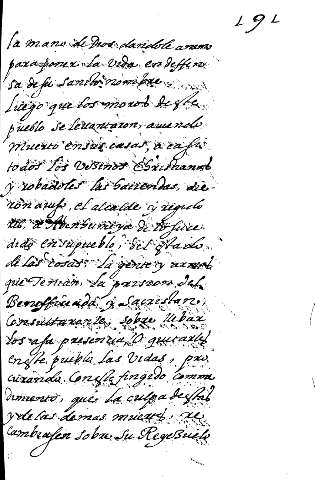 191
la mano de Dios dandole animo
para poner la vida en deffen
sa de su sancto nombre.
Luego que los moros de este
pueblo se levantaron, aviendo
muerto en sus casas, a casi
todos los vesinos Christianos
y robadoles las haciendas, die
ron aviso, el alcalde y regulo
a Abenhumeya de lo suce
dido en su pueblo, del estado
de las cosas, la gente y
que tenian, la prission del
Beneficiado, y Sacristan,
Consultaronle, sobre llebar
los a su presencia, o quitarles
en este pueblo las vidas, pro
curando con este fingido comme
dimiento, que la culpa de esta
y de las demas muertes, re
cambiasen sobre su Reyezuelo